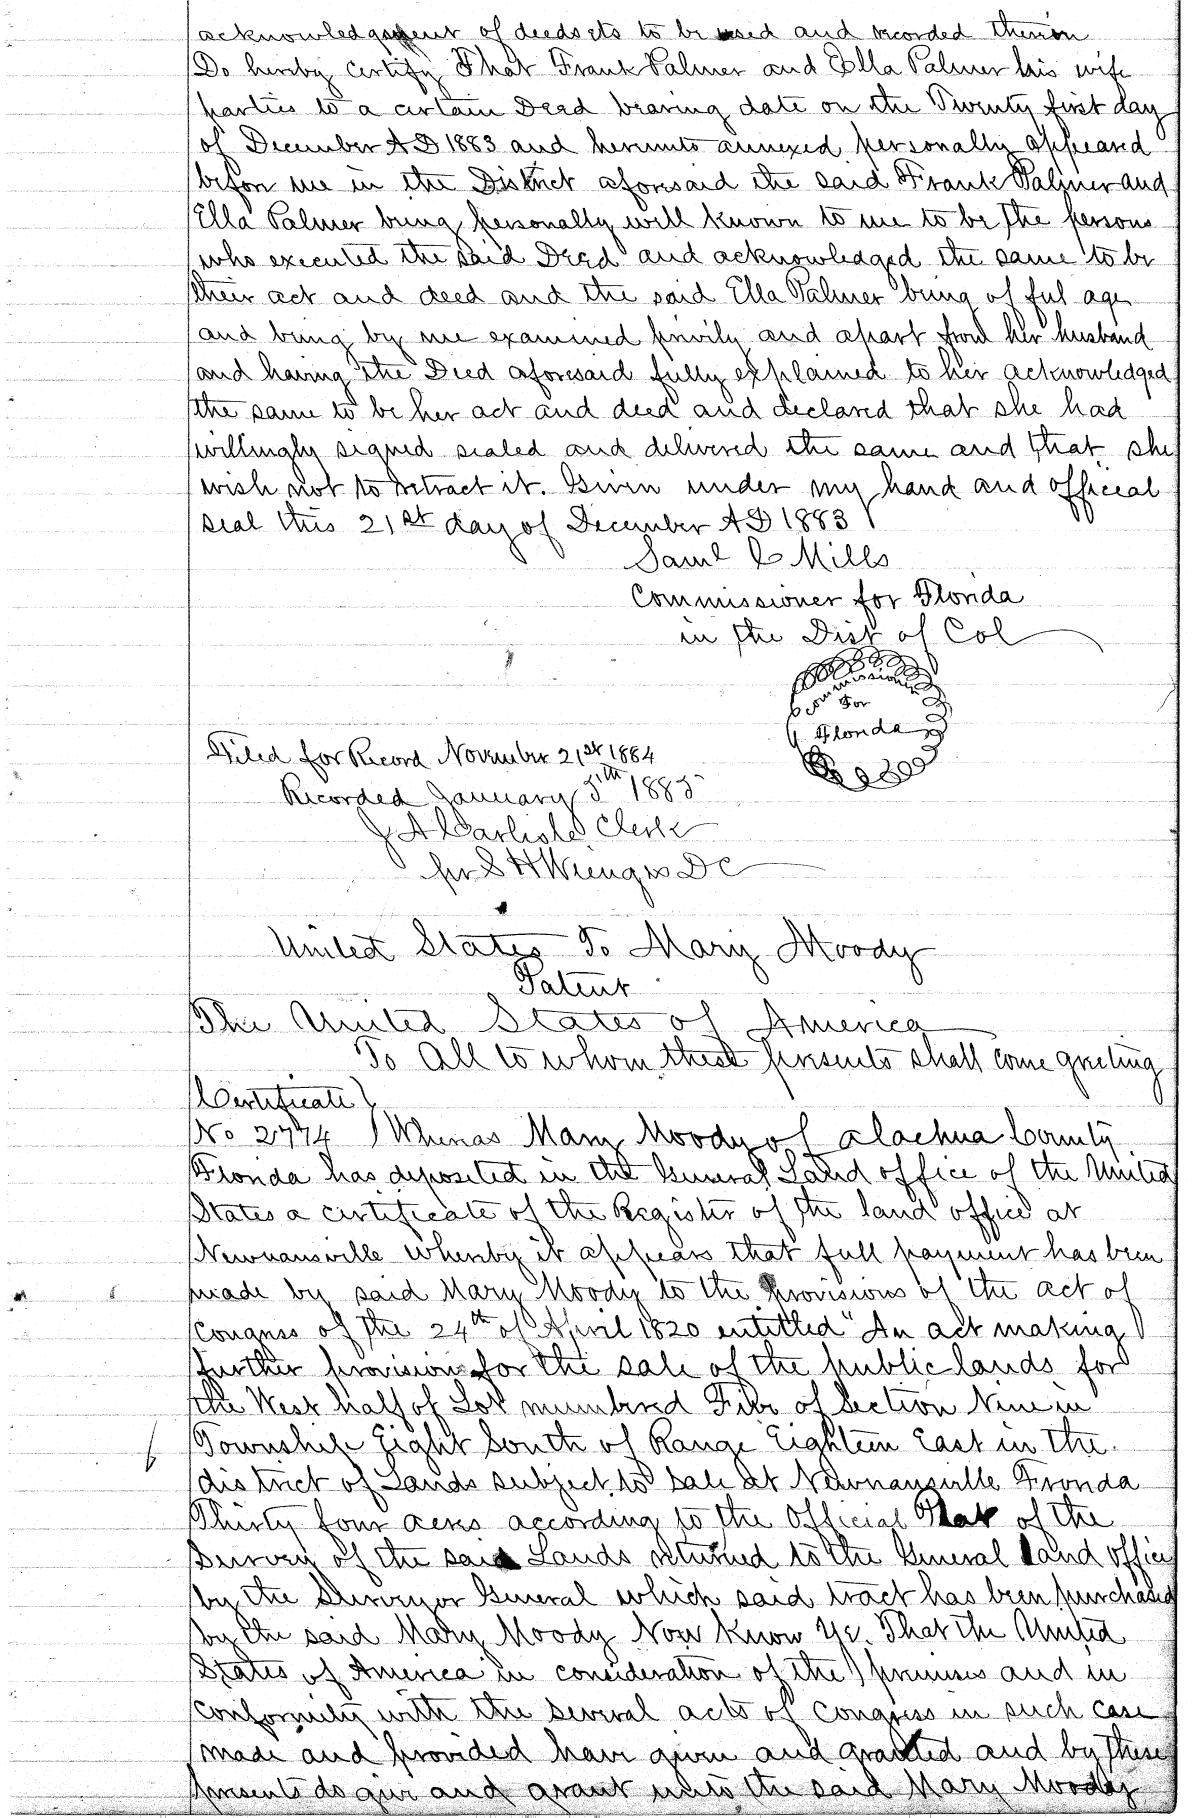 acknowledgement of deeds etc to be used and recorded therein
Do hereby certify That Frank Palmer and Ella Palmer his wife
parties to a certain Deed bearing date on the Twenty first day
of December A D 1883 and hereunto annexed personally appeared
before me in the District aforesaid the said Frank Palmer and
Ella Palmer being personally well known to me to be the persons
who executed the said Deed and acknowledged the same to be
their act and deed and the said Ella Palmer being of ful age
and being by me examined privily and apart from her husband
and having the Deed aforesaid fully explained to her acknowledged
the same to be her act and deed and declared that she had
willingly signed sealed and delivered the same and that she
wish not to retract it. Given under my hand and official
seal this 21st day of December A D 1883
Saml C Mills
Commissioner for Florida
in the Dist of Col
Commissioner
For
Florida
Filed for Record November 21st 1884
Recorded January 5th 1885
J A Carlisle Clerk
per S H Wienges D C
United States To Mary Moody
Patent
The United States of America
To All to whom these presents shall come greeting
Certificate
No 2774 Whereas Mary Moody of Alachua County
Florida has deposited in the General Land office of the United
States a certificate of the Register of the land office at
Newnansville whereby it appears that full payment has been
made by said Mary Moody to the provisions of the act of
Congress of the 24th of April 1820 entitled "An act making
further provision for the sale of the public lands for
the West half of Lot numbered Five of Section Nine in
Township Eight South of Range Eighteen East in the
district of Lands subject to sale at Newnansville Fronda
Thirty four acres according to the Official Plat of the
Survey of the said Lands returned to the General Land office
by the Surveyor General which said tract has been purchased
by the said Mary Moody Now Know Ye. That the United
States of America in consideration of the premises and in
conformity with the several acts of Congress in such case
made and provided have given and granted and by these
presents do give and grant unto the said Mary Moody